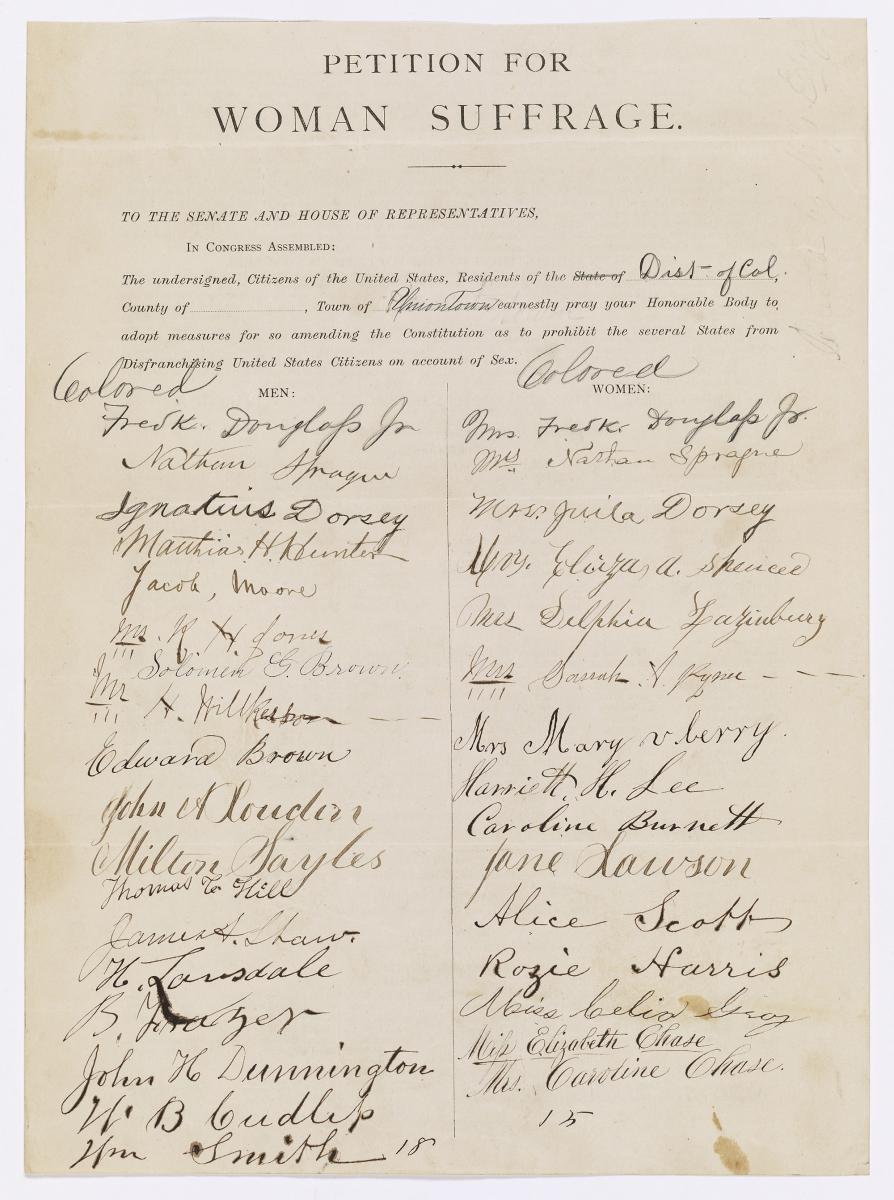 PETITION FOR
WOMAN SUFFRAGE.
TO THE SENATE AND HOUSE OF REPRESENTATIVES,
IN CONGRESS ASSEMBLED:
The undersigned, Citizens of the United States, Residents of the State of Dist. of Col,
County of , Town of Uniontown earnestly pray your Honorable Body to
adopt measures for so amending the Constitution as to prohibit the several States from
Disfranchising United States Citizens on account of Sex.
Colored
MEN:
Fredk. Douglass Jr
Nathan Sprague
Ignatius Dorsey
Matthias H. Hunter
Jacob, Moore
Mr. R H Jones
Solomon G. Brown.
Mr H. Wilkerson
Edward Brown
John N Louden
Milton Sayles
Thomas T. Hill
James H. Shaw.
H. Lansdale
B. Frazer
John H Dunnington
W B Cudlip
Wm Smith 18
Colored
WOMEN:
Mrs. Fredk. Douglass Jr.
Mrs Nathan Sprague
Mrs. Juila Dorsey
Mrs. Eliza A. Spencer
Mrs Delphia Lazinbury
Mrs Sarah A.
Mrs Mary v berry.
Harriett. H. Lee
Caroline Burnett
Jane Lawson
Alice Scott
Rozie Harris
Miss Celia Gray
Miss Elizabeth Chase
Mrs. Caroline Chase.
15